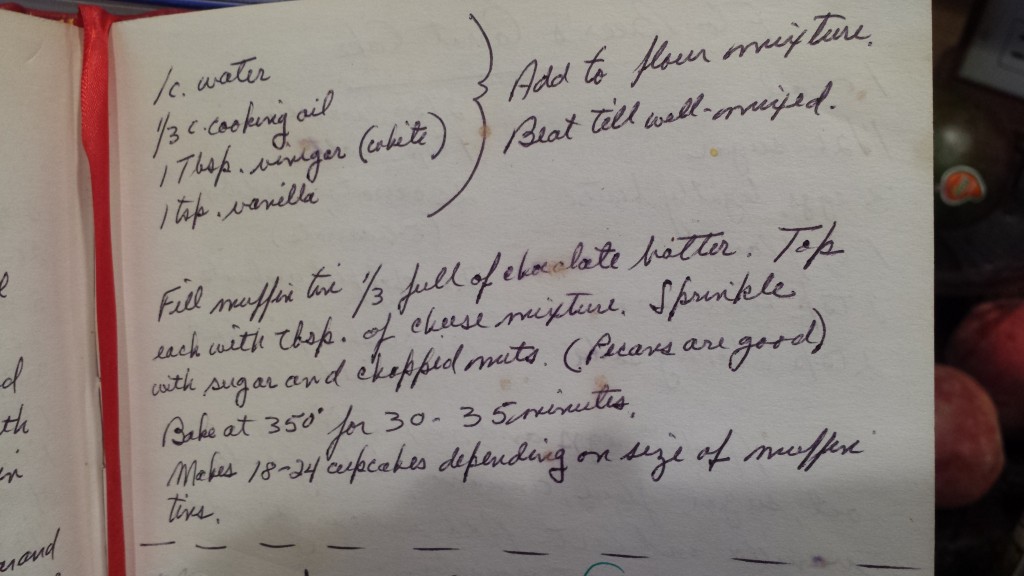 1 c. water
1/3 c. cooking oil
1 Tbsp. vinegar (white)
1 tsp. vanilla
Add to flour mixture.
Beat till well-mixed.
Fill muffin tin 1/3 full of chocolate batter. Top
each with Tbsp. of cheese mixture. Sprinkle
with sugar and chopped nuts. (Pecans are good)
Bake at 350° for 30-35 minutes.
Makes 18-24 cupcakes depending on size of muffin
tins.